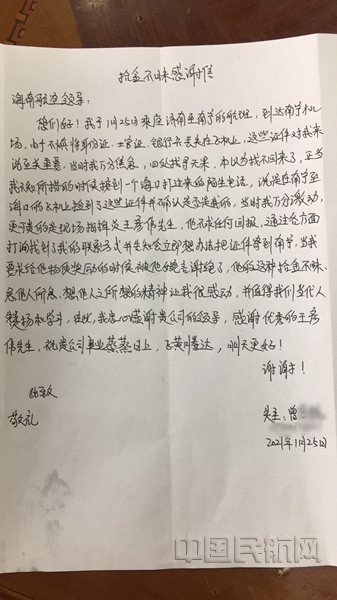 拾金不昧感谢信
海南航空领导:
您们好！我于1月25日乘座济南至南宁的航班，到达南宁机
场，由于不慎将身份证、士官证、银行卡丢失在飞机上，这些证件对我来
说至关重要，当时我万分焦急，四处找寻无果，本以为找不回来了，正当
我不知所措的时候接到一个海口打过来的陌生电话，说是在南宁至
海口的飞机上捡到了这些证件并确认是否是我的，当时我万分激动，
更可贵的是现场指挥员王彦伟先生，他不求任何回报，通过各方面
打询找到了我的联系方式并告知会立即想办法把证件带到南宁，当我
要求给他物质奖励的时候被他婉言谢绝了，他的这种拾金不昧、
急他人所急、想他人之所想的精神让我很感动，并值得我们当代人
发扬和学习，在此，我衷心感谢贵公司的领导，感谢优秀的王彦
伟先生，祝贵公司事业蒸蒸日上，飞黄腾达，明天更好！
谢谢！
此致
敬礼
失主：曾
2021年1月25日
中国民航网